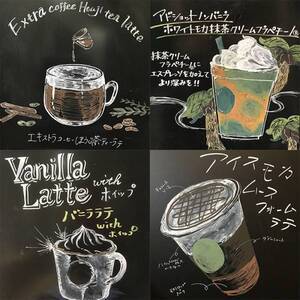 Extra coffee Houji tea latte
エキストラコーヒーほうじ茶ティーラテ
アドショット ノンバニラ
ホワイトモカ抹茶クリームフラペチーノ
抹茶クリーム
フラペチーノに
エスプレッソを加えて
より深みを!!
Vanilla
Latte with
ホイップ
バニララテ
with
ホイップ
アイスモカ
ムース
フォーム
ラテ